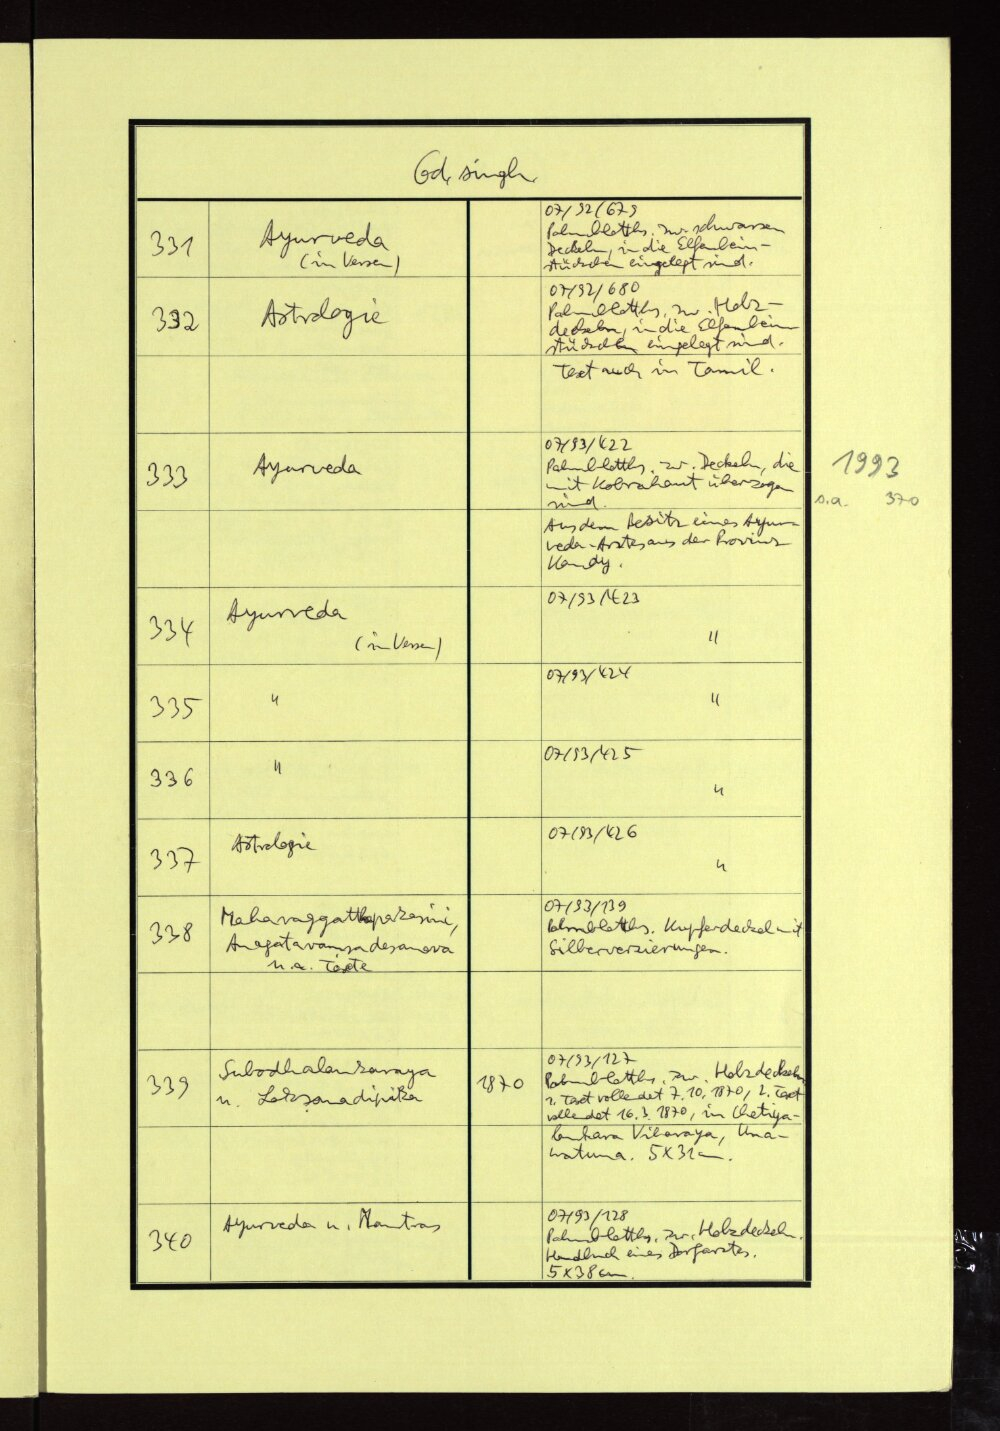 Cod. singh.
331
Ayurveda
(in Versen)
07/92/679
Palmblatths. zw. schwarzen
Deckeln, in die Elfenbein-
stückchen eingelegt sind.
332
Astrologie
07/92/680
Palmblatths. zw. Holz-
deckeln, in die Elfenbein
stückchen eingelegt sind.
Text auch in Tamil.
333
Ayurveda
07/93/422
Palmblatths. zw. Deckeln, die
mit Kobrahaut überzogen
sind.
Aus dem Besitz eines Ayur-
veda-Arztes aus der Provinz
Kandy.
1993
s.a. 370
334
Ayurveda
(in Versen)
07/93/423
"
335
"
07/93/424
"
336
"
07/93/425
"
337
Astrologie
07/93/426
"
338
Mahavaggatthapakasini,
Anagatavamsadesanava
u.a. Texte
07/93/139
Palmblatths. Kupferdeckel mit
Silberverzierungen.
339
Subodhalankaraya
u. Laksanadipika
1870
07/93/127
Palmblatths. zw. Holzdeckeln
1. Text vollendet 7.10.1870, 2. Text
vollendet 16.3.1870, in Chetiya-
lankara Viharaya, Una-
watuna. 5x31cm.
340
Ayurveda u. Mantras
07/93/128
Palmblatths. zw. Holzdeckeln.
Handbuch eines Dorfarztes.
5x38cm.